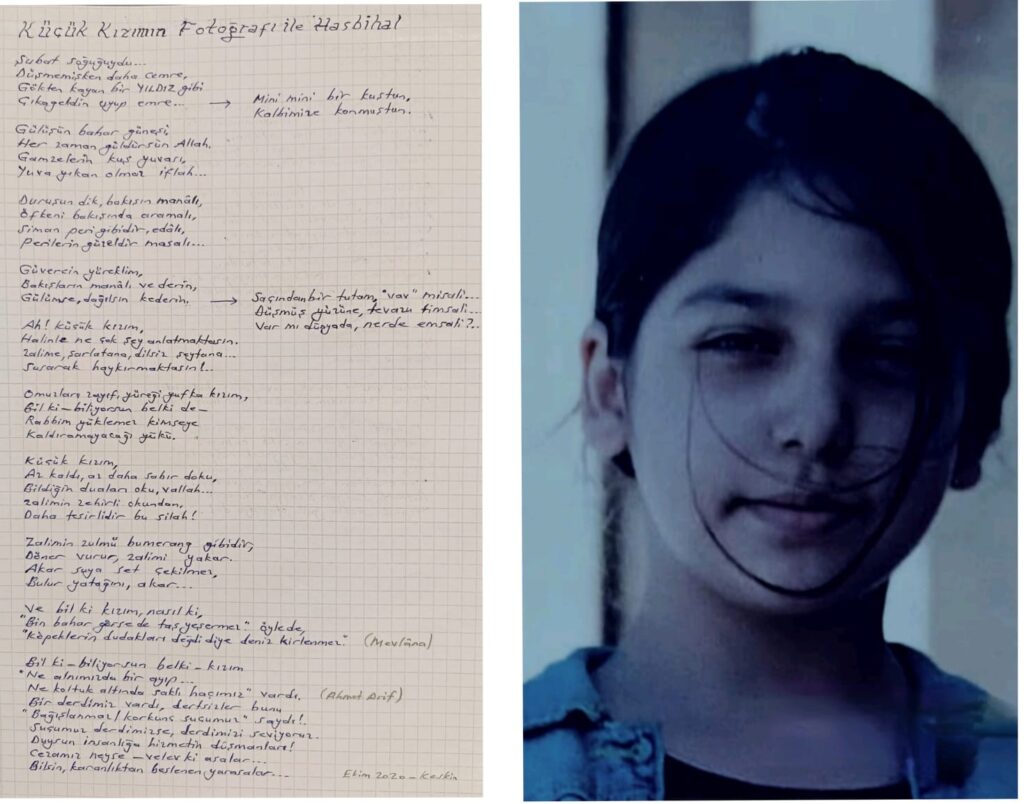 Küçük Kızımın Fotoğrafı ile Hasbihal
Şubat soğuğuydu...
Düşmemişken daha cemre,
Gökten kayan bir YILDIZ gibi
Çıkageldin uyup emre... → Mini mini bir kuştun,
Kalbimize konmuştun.
Gülüşün bahar güneşi,
Her zaman güldürsün Allah.
Gamzelerin kuş yuvası,
Yuva yıkan olmaz iflah...
Duruşun dik, bakışın manâlı,
Öfkeni bakışında aramalı,
Siman peri gibidir, edâlı,
Perilerin güzeldir masalı...
Güvercin yüreklim,
Bakışların manâlı ve derin,
Gülümse, dağılsın kederin. → Saçından bir tutam, "vav" misali...
Düşmüş yüzüne, tevazu timsali...
Var mı dünyada, nerde emsali?..
Ah! küçük kızım,
Halinle ne çok şey anlatmaktasın.
Zalime, şarlatana, dilsiz şeytana...
Susarak haykırmaktasın!..
Omuzları zayıf, yüreği yufka kızım,
Bil ki-biliyorsun belki de-
Rabbim yüklemez kimseye
Kaldıramayacağı yükü.
Küçük kızım,
Az kaldı, az daha sabır doku,
Bildiğin duaları oku, vallah...
Zalimin zehirli okundan,
Daha tesirlidir bu silah!
Zalimin zulmü bumerang gibidir,
Döner vurur, zalimi yakar.
Akar suya set çekilmez,
Bulur yatağını, akar...
Ve bil ki kızım, nasıl ki,
"Bin bahar görse de taş yeşermez" öyle de,
"Köpeklerin dudakları değdi diye deniz kirlenmez." (Mevlâna)
Bil ki-biliyorsun belki-kızım
"Ne alnımızda bir ayıp...
Ne koltuk altında saklı haçımız" vardı. (Ahmet Arif)
Bir derdimiz vardı, dertsizler bunu
"Bağışlanmaz/korkunç suçumuz" saydı!.
Suçumuz derdimizse, derdimizi seviyoruz.
Duysun insanlığa hizmetin düşmanları!
Cezamız neyse - velev ki asalar...
Bilsin, karanlıktan beslenen yarasalar...
Ekim 2020-Keskin